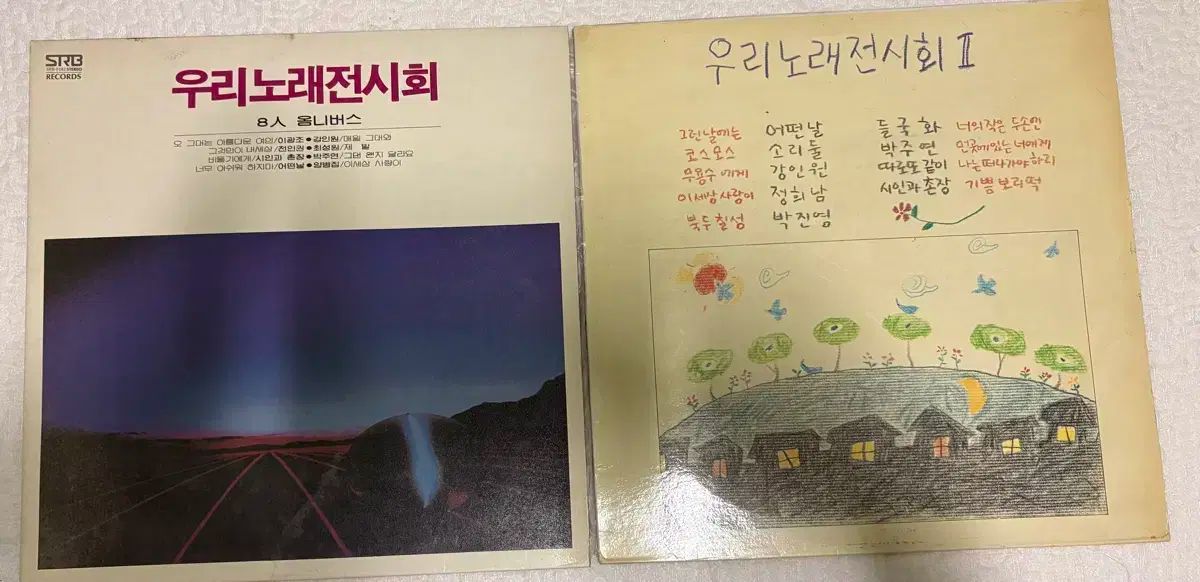 SRB
STEREO
RECORDS
우리노래전시회
8人 옴니버스
오 그대는 아름다운 여인/이광조●강인원/매일 그대와
그것만이 내세상/전인권●최성원/제 발
비둘기에게/시인과 촌장●박주연/그댄 왠지 달라요
너무 아쉬워 하지마/어떤날●양병집/이세상 사랑이
우리노래전시회 II
그런 날에는 어떤날 들국화 너의 작은 두손엔
코스모스 소리둘 박주연
무용수에게 강인원 따로또같이 나는 떠나가야 하리
이 세상 사랑이 정희남 시인과 촌장 기쁨 보리떡
북두칠성 박진영